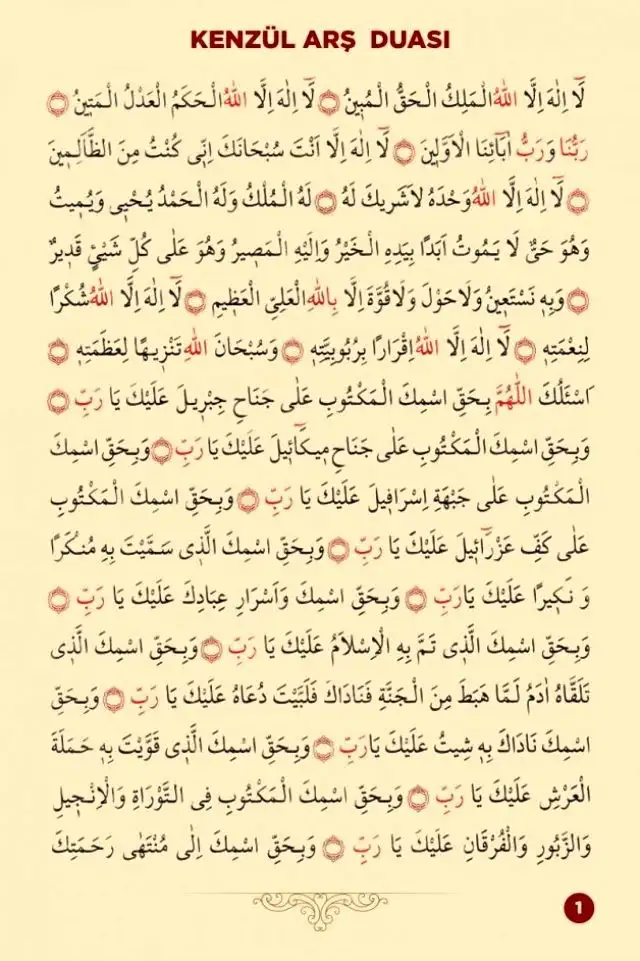 KENZÜL ARŞ DUASI
لَٓا اِلٰهَ اِلَّا اللهُ الْمَلِكُ الْحَقُّ الْمُبٖينُ ۝ لَٓا اِلٰهَ اِلَّا اللهُ الْحَكَمُ الْعَدْلُ الْمَتٖينُ ۝
رَبُّنَا وَرَبُّ اٰبَٓائِنَا الْاَوَّلٖينَ ۝ لَٓا اِلٰهَ اِلَّا اَنْتَ سُبْحَانَكَ اِنّٖى كُنْتُ مِنَ الظَّالِمٖينَ
۝ لَٓا اِلٰهَ اِلَّا اللهُ وَحْدَهُ لَاشَرٖيكَ لَهُ ۝ لَهُ الْمُلْكُ وَلَهُ الْحَمْدُ يُحْيٖى وَيُمٖيتُ
وَهُوَ حَىٌّ لَا يَمُوتُ اَبَدًا بِيَدِهِ الْخَيْرُ وَاِلَيْهِ الْمَصٖيرُ وَهُوَ عَلٰى كُلِّ شَيْئٍ قَدٖيرٌ
۝ وَبِهٖ نَسْتَعٖينُ وَلَاحَوْلَ وَلَاقُوَّةَ اِلَّا بِاللهِ الْعَلِىِّ الْعَظٖيمِ ۝ لَٓا اِلٰهَ اِلَّا اللهُ شُكْرًا
لِنِعْمَتِهٖ ۝ لَٓا اِلٰهَ اِلَّا اللهُ اِقْرَارًا بِرُبُوبِيَّتِهٖ ۝ وَسُبْحَانَ اللهِ تَنْزٖيهًا لِعَظَمَتِهٖ ۝
اَسْئَلُكَ اللّٰهُمَّ بِحَقِّ اسْمِكَ الْمَكْتُوبِ عَلٰى جَنَاحِ جِبْرٖيلَ عَلَيْكَ يَا رَبِّ ۝
وَبِحَقِّ اسْمِكَ الْمَكْتُوبِ عَلٰى جَنَاحِ مٖيكَٓائٖيلَ عَلَيْكَ يَا رَبِّ ۝ وَبِحَقِّ اسْمِكَ
الْمَكْتُوبِ عَلٰى جَبْهَةِ اِسْرَافٖيلَ عَلَيْكَ يَا رَبِّ ۝ وَبِحَقِّ اسْمِكَ الْمَكْتُوبِ
عَلٰى كَفِّ عَزْرَٓائٖيلَ عَلَيْكَ يَا رَبِّ ۝ وَبِحَقِّ اسْمِكَ الَّذٖى سَمَّيْتَ بِهٖ مُنْكَرًا
وَ نَكٖيرًا عَلَيْكَ يَارَبِّ ۝ وَبِحَقِّ اسْمِكَ وَاَسْرَارِ عِبَادِكَ عَلَيْكَ يَا رَبِّ ۝
وَبِحَقِّ اسْمِكَ الَّذٖى تَمَّ بِهِ الْاِسْلَامُ عَلَيْكَ يَا رَبِّ ۝ وَبِحَقِّ اسْمِكَ الَّذٖى
تَلَقَّاهُ اٰدَمُ لَمَّا هَبَطَ مِنَ الْجَنَّةِ فَنَادَاكَ فَلَبَّيْتَ دُعَاهُ عَلَيْكَ يَا رَبِّ ۝ وَبِحَقِّ
اسْمِكَ نَادَاكَ بِهٖ شٖيثُ عَلَيْكَ يَارَبِّ ۝ وَبِحَقِّ اسْمِكَ الَّذٖى قَوَّيْتَ بِهٖ حَمَلَةَ
الْعَرْشِ عَلَيْكَ يَا رَبِّ ۝ وَبِحَقِّ اسْمِكَ الْمَكْتُوبِ فِى التَّوْرَاةِ وَالْاِنْجٖيلِ
وَالزَّبُورِ وَالْفُرْقَانِ عَلَيْكَ يَا رَبِّ ۝ وَبِحَقِّ اسْمِكَ اِلٰى مُنْتَهٰى رَحْمَتِكَ
1